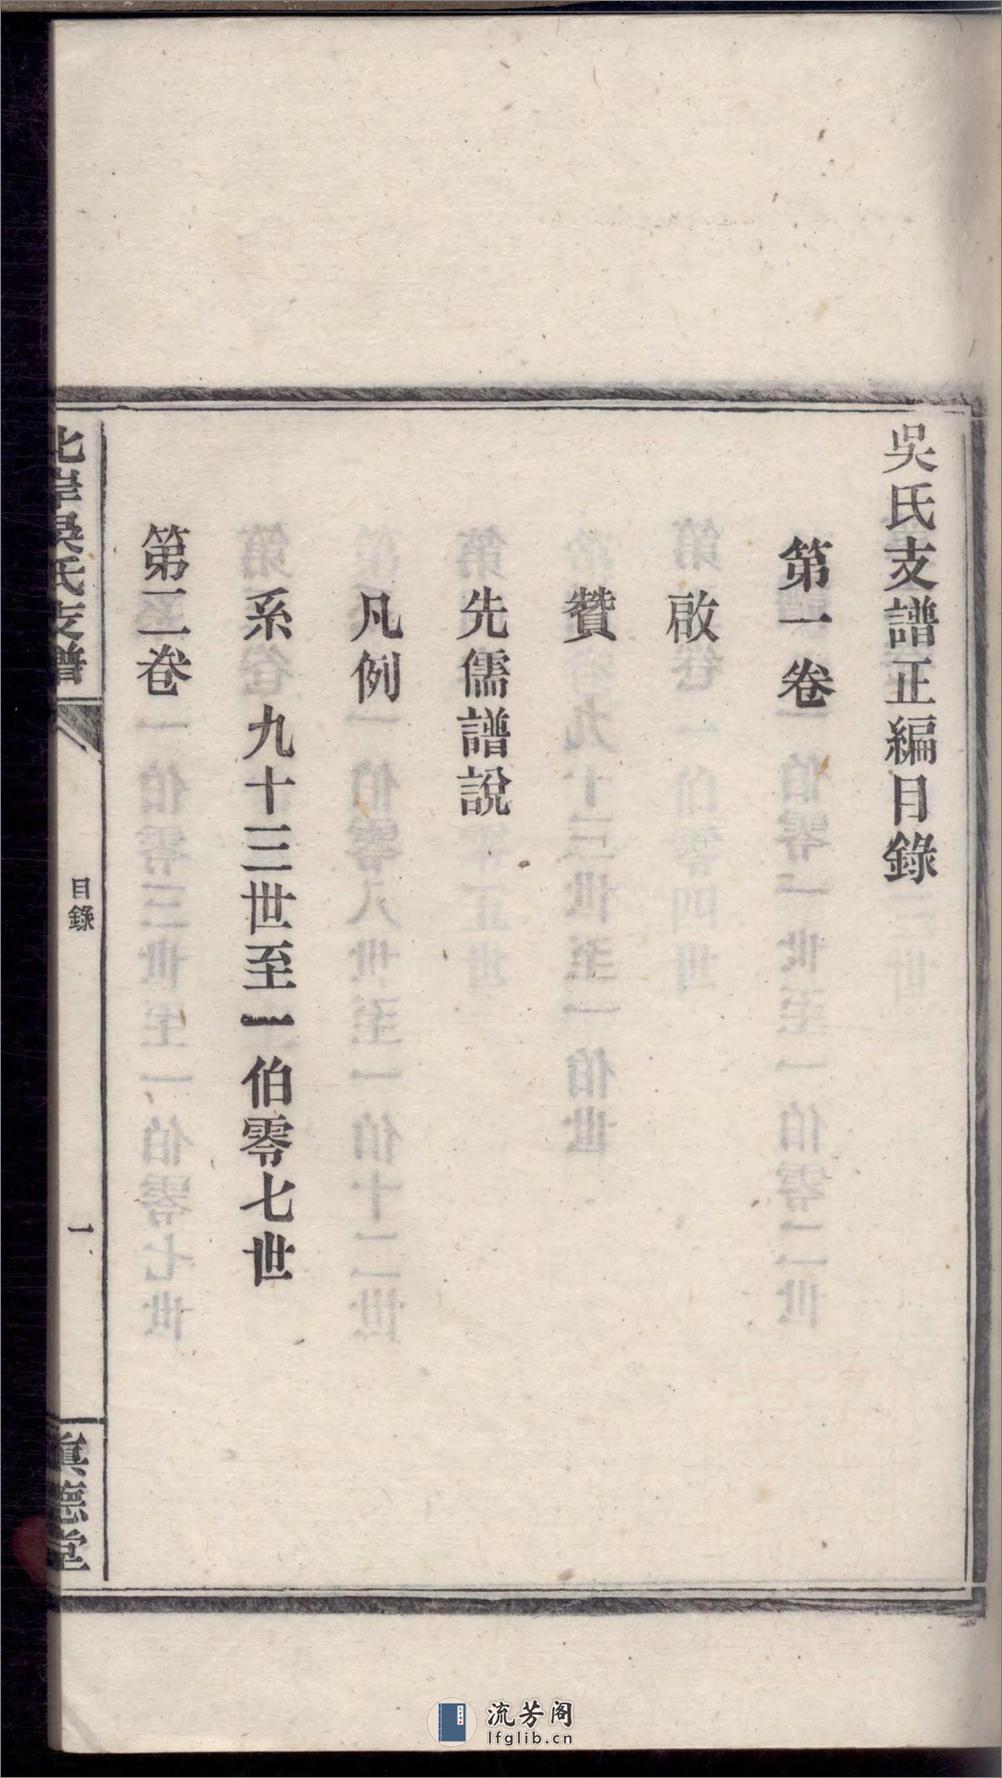 吳氏支譜正編目錄
第一卷
啟
贊
先儒譜說
凡例
系九十三世至一伯零七世
第二卷
北岸吳氏支譜
目錄
一
真德堂
流芳阁
lfglib.cn